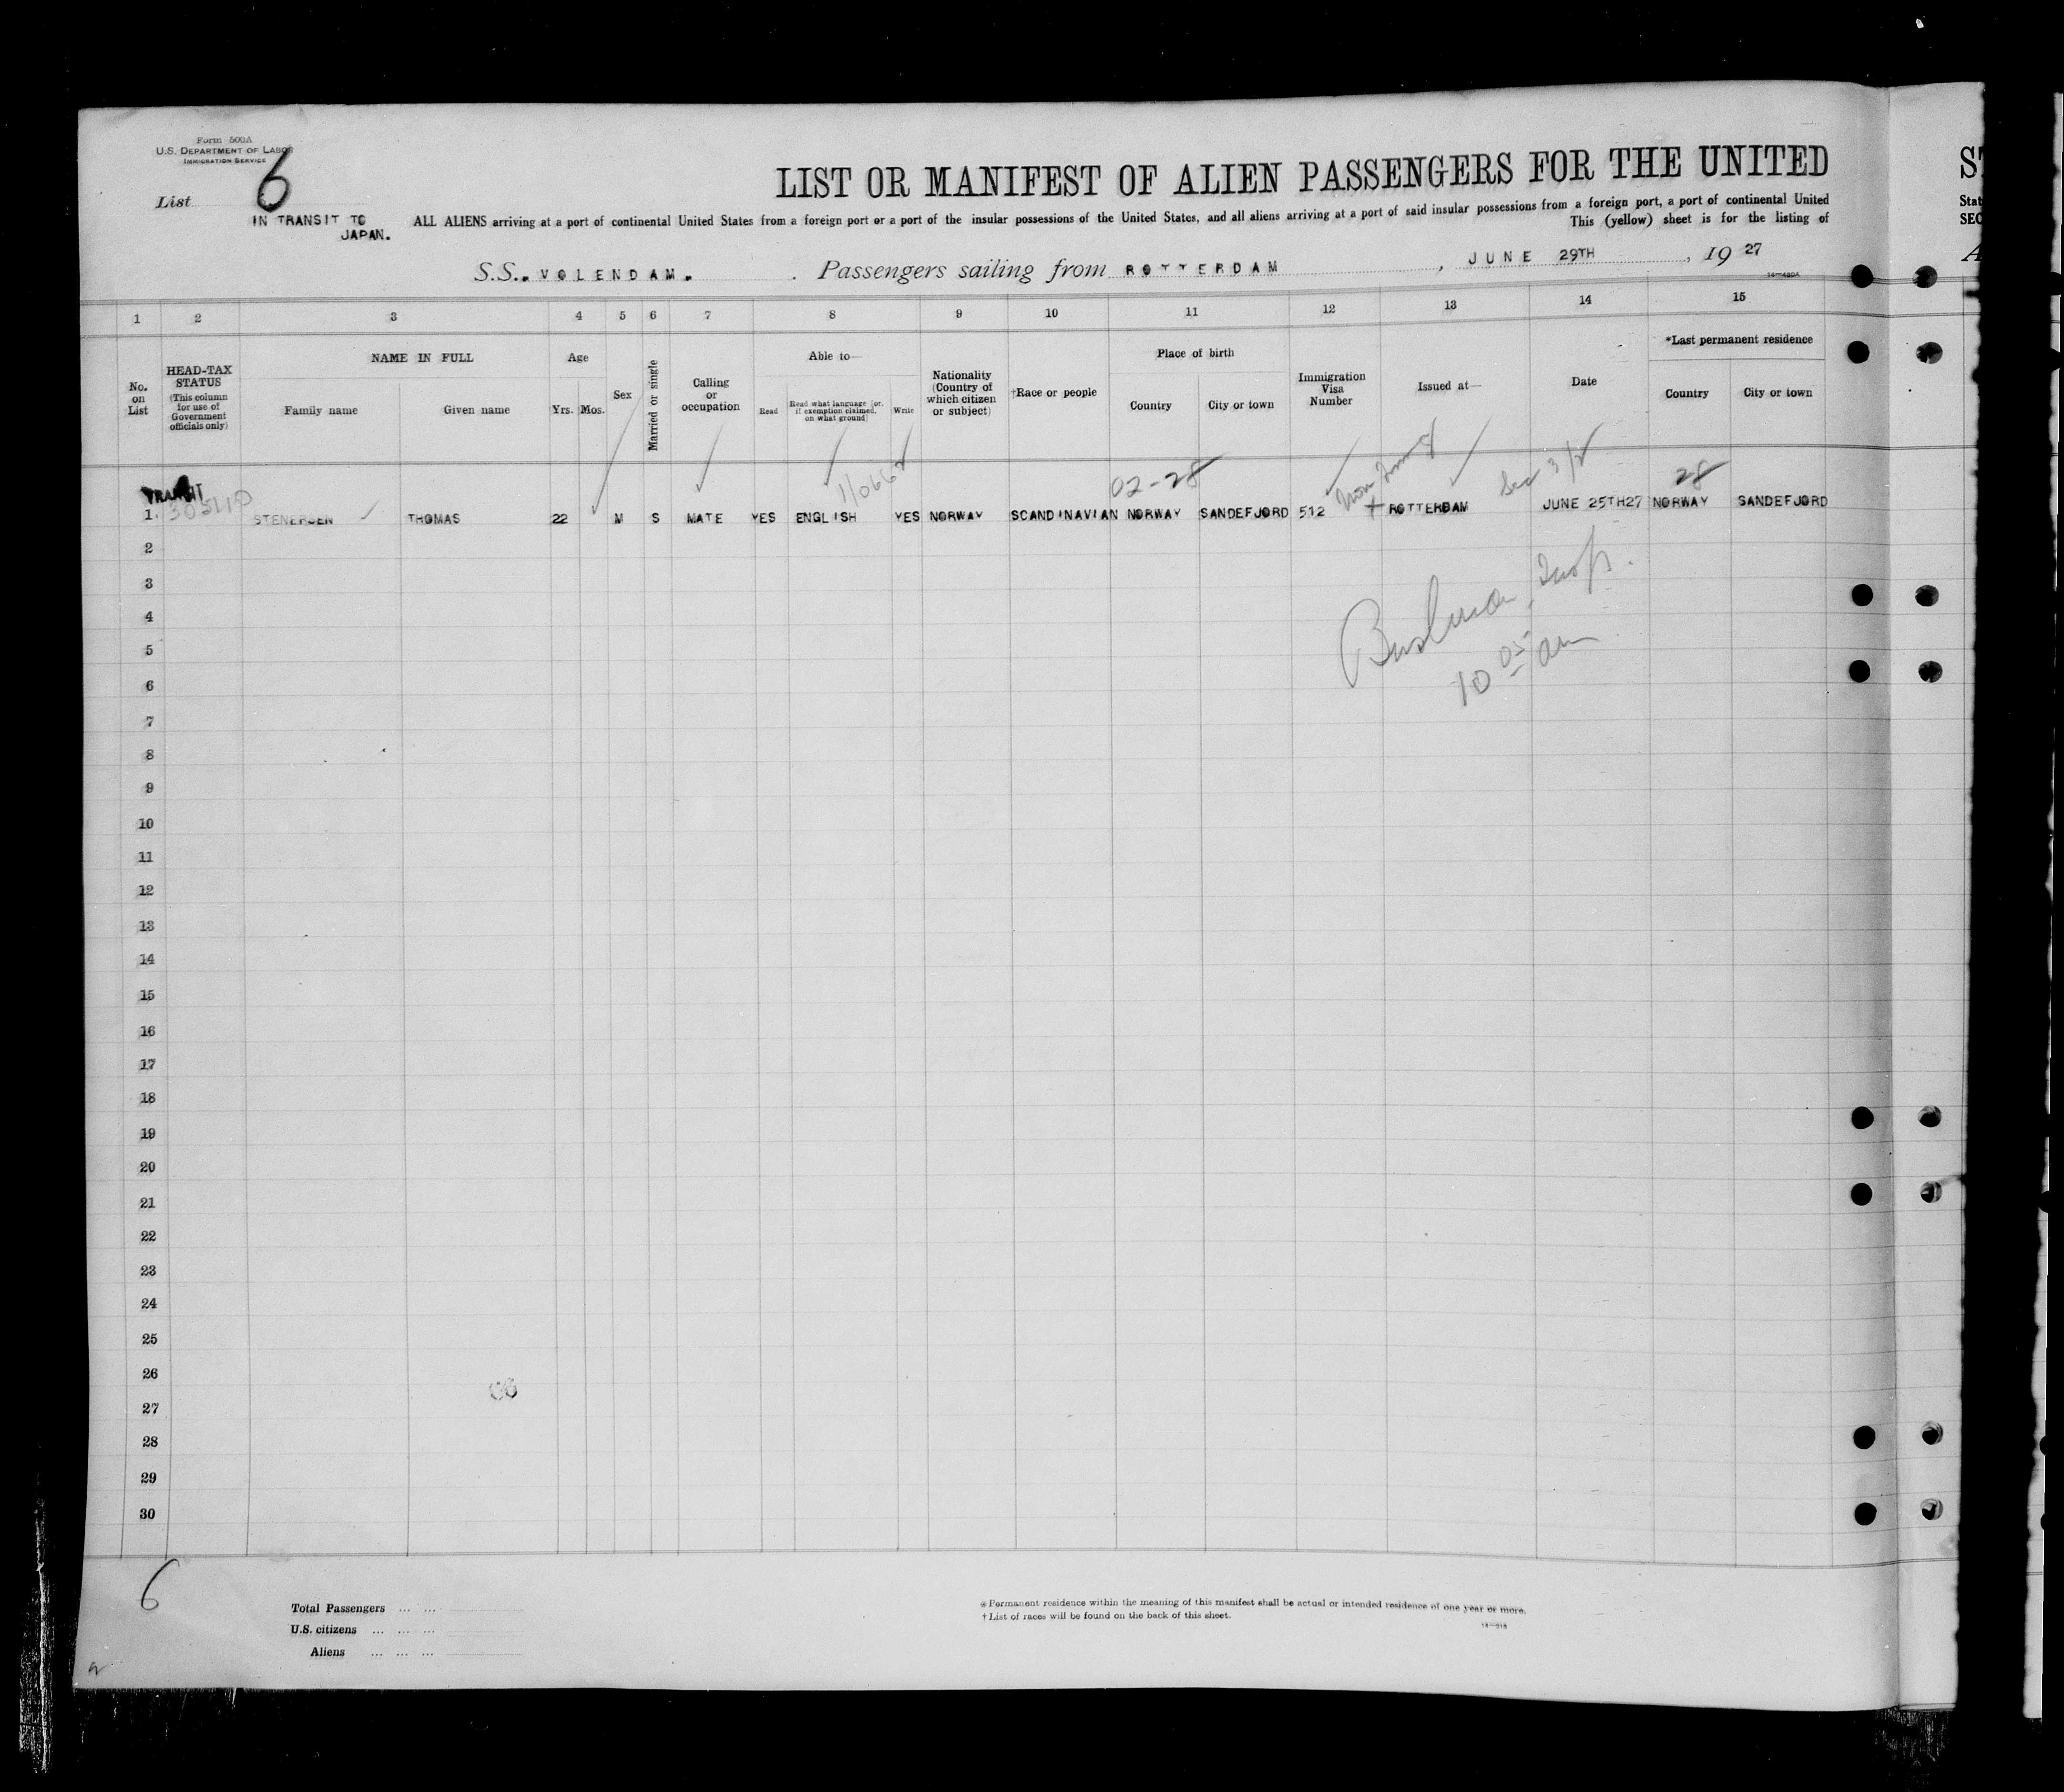 Form 500A
U.S. DEPARTMENT OF LABOR
IMMIGRATION SERVICE
List 6
IN TRANSIT TO
JAPAN.
LIST OR MANIFEST OF ALIEN PASSENGERS FOR THE UNITED
ALL ALIENS arriving at a port of continental United States from a foreign port or a port of the insular possessions of the United States, and all aliens arriving at a port of said insular possessions from a foreign port, a port of continental United
This (yellow) sheet is for the listing of
S.S. VOLENDAM. Passengers sailing from ROTTERDAM, JUNE 29TH, 19 27
1 2 3 4 5 6 7 8 9 10 11 12 13 14 15
No. on List
HEAD-TAX STATUS (This column for use of Government officials only)
NAME IN FULL
Family name
Given name
Age
Yrs. Mos.
Sex
Married or single
Calling or occupation
Able to—
Read
Read what language [or, if exemption claimed, on what ground]
Write
Nationality (Country of which citizen or subject)
†Race or people
Place of birth
Country
City or town
Immigration Visa Number
Issued at—
Date
*Last permanent residence
Country
City or town
TRANSIT
02-28
28
1 STENERSEN THOMAS 22 M S MATE YES ENGLISH YES NORWAY SCANDINAVIAN NORWAY SANDEFJORD 512 ROTTERDAM JUNE 25TH27 NORWAY SANDEFJORD
2
3
4
5
6
10 05 am
7
8
9
10
11
12
13
14
15
16
17
18
19
20
21
22
23
24
25
26
27
28
29
30
6
Total Passengers
U.S. citizens
Aliens
*Permanent residence within the meaning of this manifest shall be actual or intended residence of one year or more.
†List of races will be found on the back of this sheet.